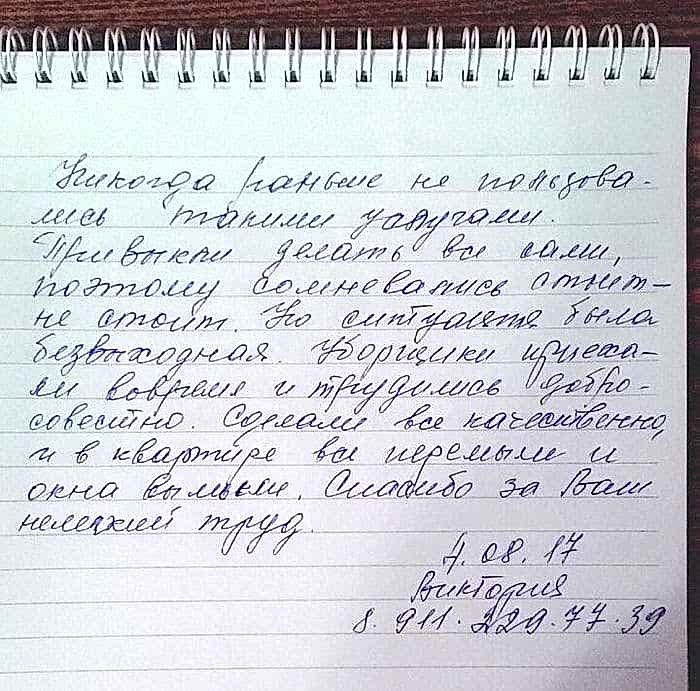 Никогда раньше не пользова-
лись такими услугами.
Привыкли делать все сами,
поэтому сомневались стоит-
не стоит. Но ситуация была
безвыходная. Уборщики приеха-
ли вовремя и трудились добро-
совестно. Сделали все качественно,
и в квартире все перемыли и
окна вымыли. Спасибо за Ваш
нелегкий труд.
4.08.17
Виктория
8.911.229.77.39